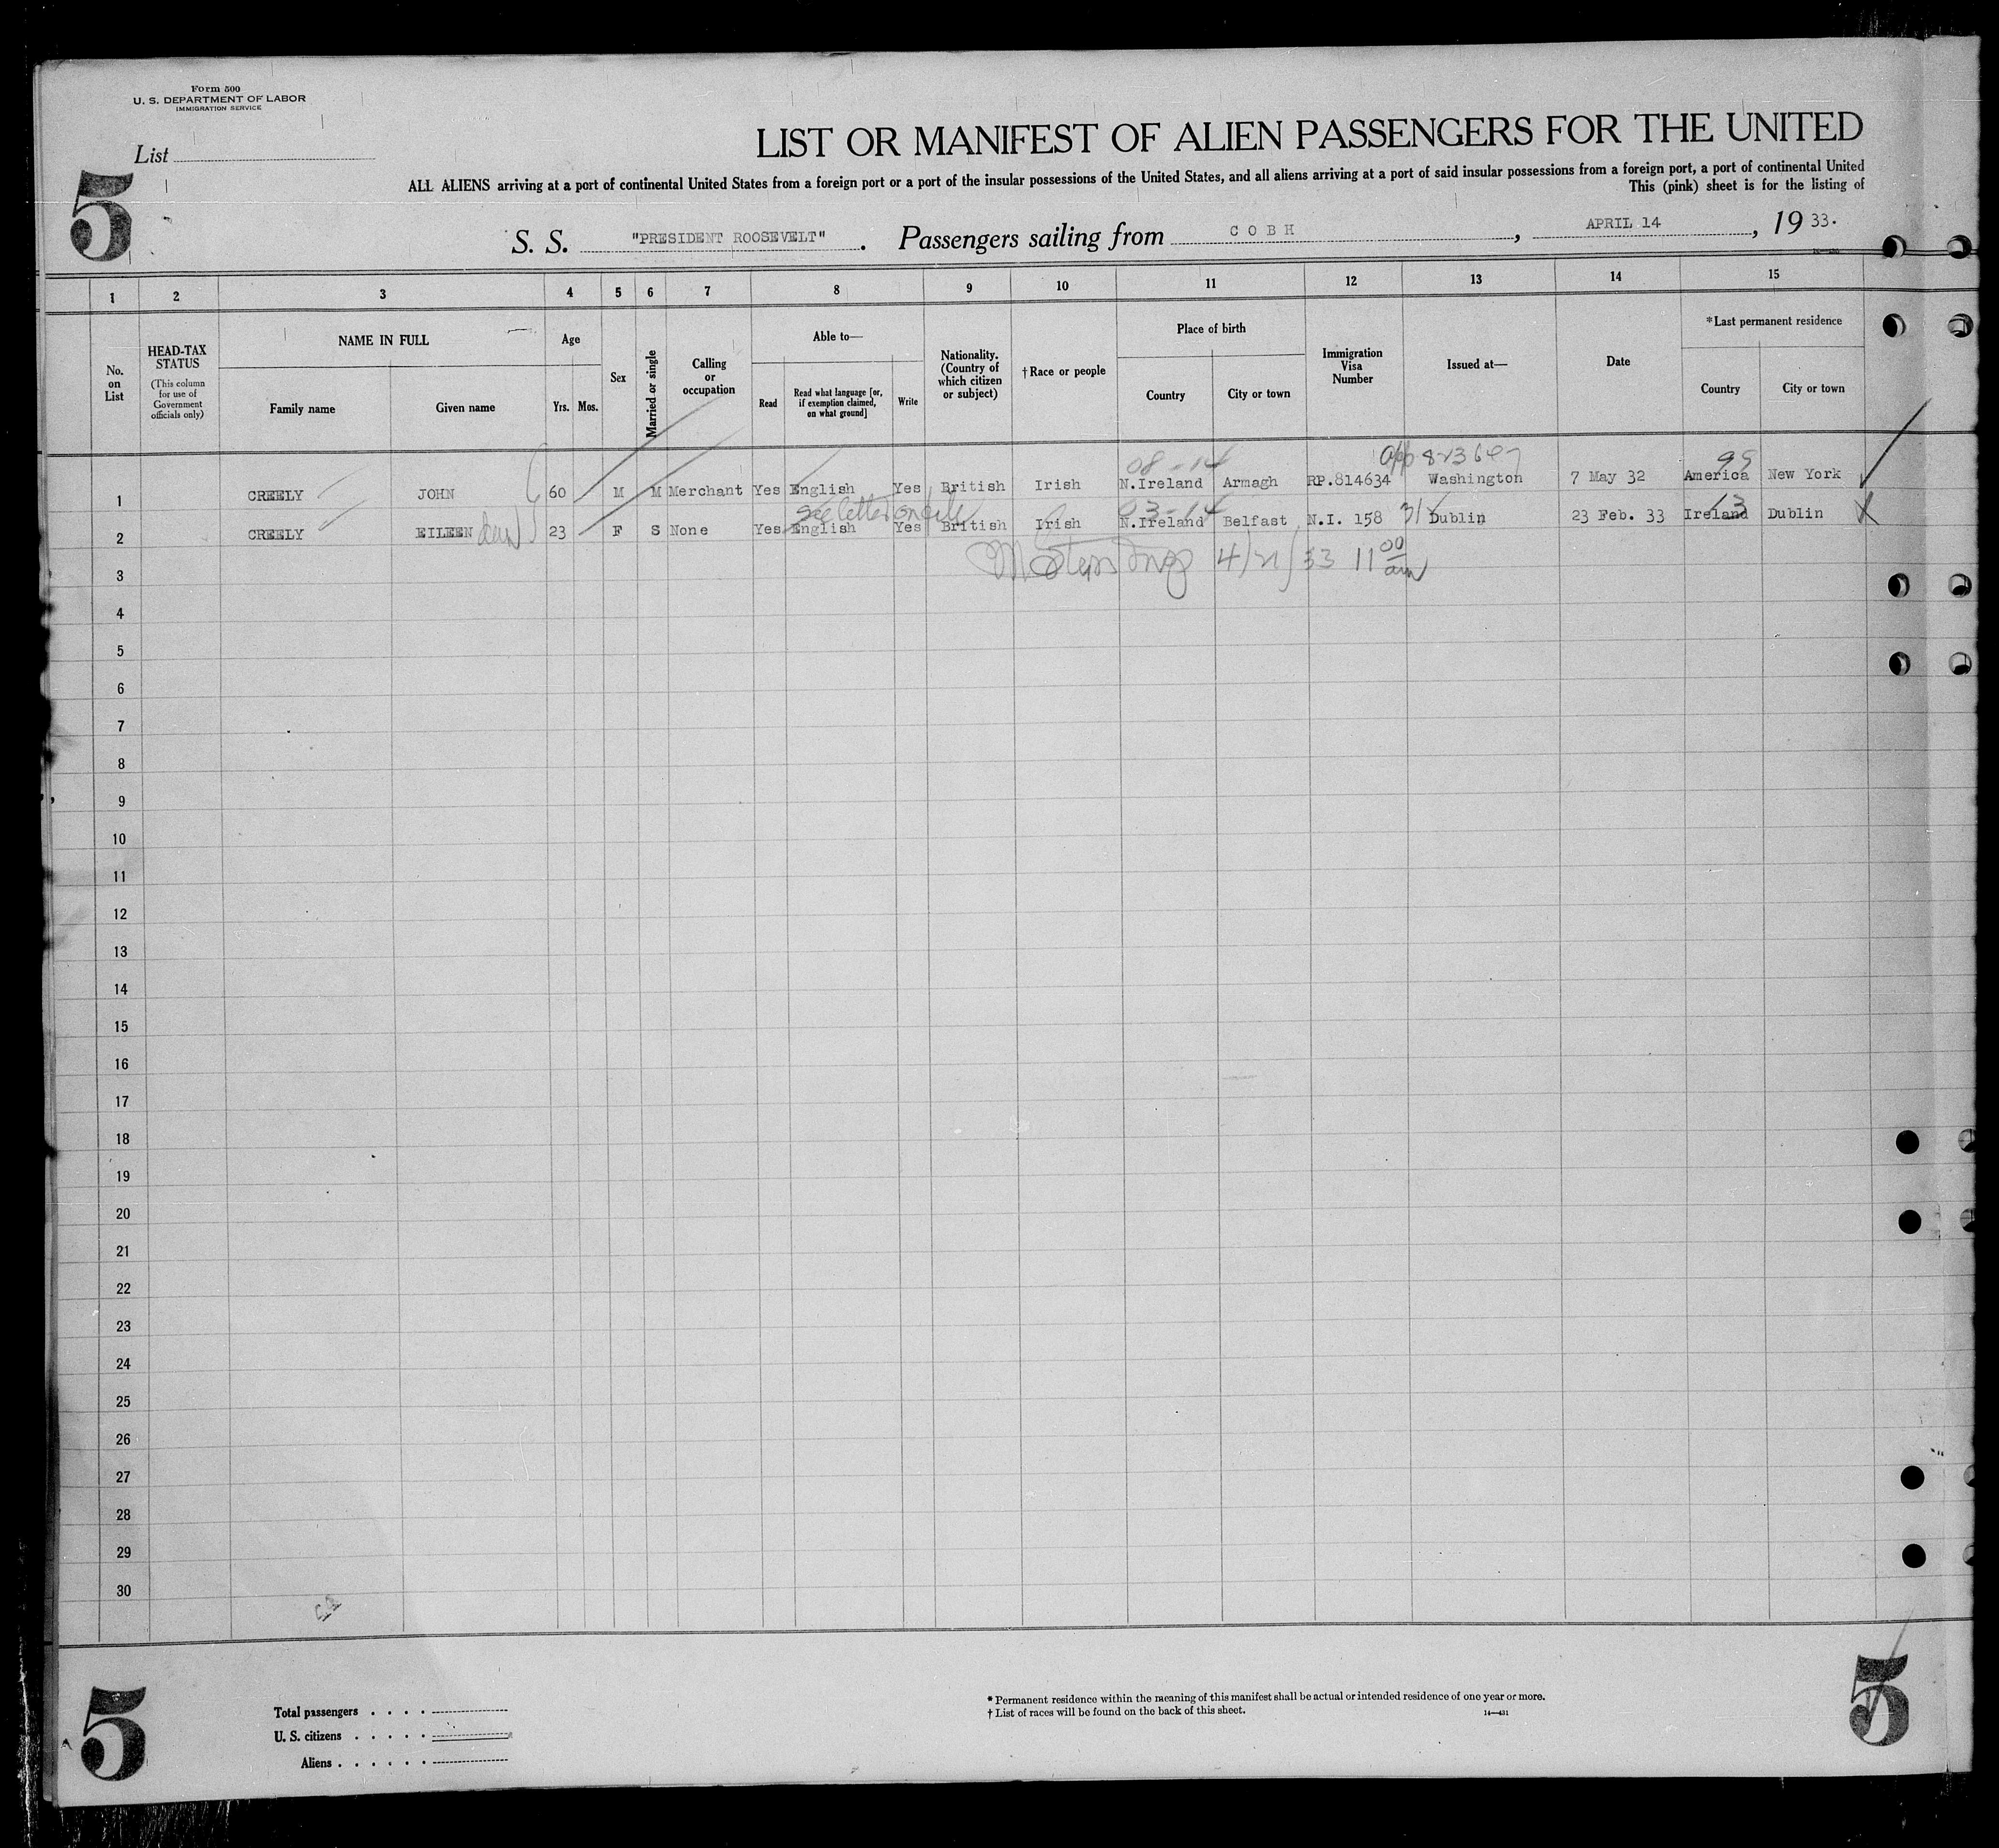 Form 500
U. S. DEPARTMENT OF LABOR
IMMIGRATION SERVICE
List
5
LIST OR MANIFEST OF ALIEN PASSENGERS FOR THE UNITED
ALL ALIENS arriving at a port of continental United States from a foreign port or a port of the insular possessions of the United States, and all aliens arriving at a port of said insular possessions from a foreign port, a port of continental United
This (pink) sheet is for the listing of
S. S. "PRESIDENT ROOSEVELT" . Passengers sailing from COBH , APRIL 14 , 19 33.
1 2 3 4 5 6 7 8 9 10 11 12 13 14 15
No. on List
HEAD-TAX STATUS
(This column for use of Government officials only)
NAME IN FULL
Family name Given name
Age
Yrs. Mos.
Sex
Married or single
Calling or occupation
Able to—
Read Read what language [or, if exemption claimed, on what ground] Write
Nationality. (Country of which citizen or subject)
†Race or people
Place of birth
Country City or town
Immigration Visa Number
Issued at—
Date
*Last permanent residence
Country City or town
08-14 app 823647 99
1 CREELY JOHN 60 M M Merchant Yes English Yes British Irish N.Ireland Armagh RP.814634 Washington 7 May 32 America New York
see letter on file 03-14 13
2 CREELY EILEEN 23 F S None Yes English Yes British Irish N.Ireland Belfast N.I. 158 Dublin 23 Feb. 33 Ireland Dublin
3 4/21/33 11 00 am
4
5
6
7
8
9
10
11
12
13
14
15
16
17
18
19
20
21
22
23
24
25
26
27
28
29
30
5
Total passengers . . . .
U. S. citizens . . . . .
Aliens . . . . . .
* Permanent residence within the meaning of this manifest shall be actual or intended residence of one year or more.
† List of races will be found on the back of this sheet.
14—431
5